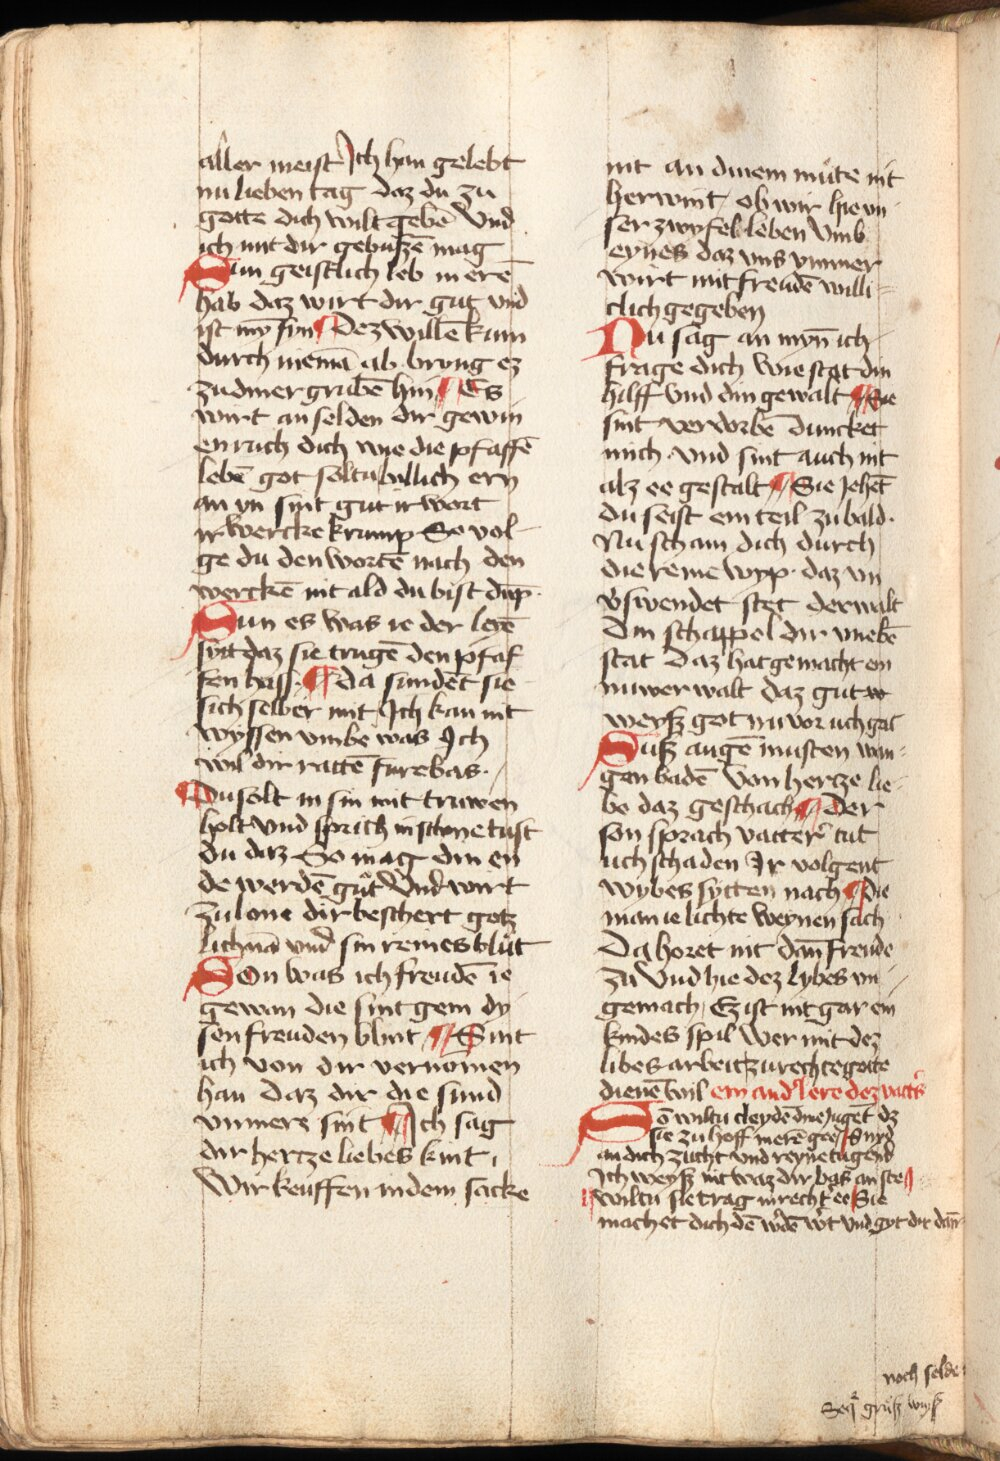 aller meist Ich han gelebt
nu lieben tag daz du zu
gotte dich wilt gebē Und
ich mit dir gebuszē mag
Sun geistlich leb in erē
hab daz wirt dir gut und
ist myn syn ¶ Dez willē kum
durch niemā ab brung ez
zu diner grubē hin ¶ Es
wirt an selden dir gewin
en ruch dich wie die pfaffē
lebē got soltu billich ern
an yn sint gut ir wort
ir wercke krump So vol
ge du den wortē nach den
werckē nit ald du bist dūp
Sun es was ie der leyē
sytt daz sie trugē den pfaf
fen hass ¶ Da sundēt sie
sich selber mit Ich kan nit
wyssen umbe was Ich
wil dir rattē furebas
Du solt in sin mit truwen
holt und sprich in schone tust
du daz So mag din en
de werdē gůt Und wirt
zu lone dir beschert gotz
lichnā und sin reines blůt
Son was ich freudē ie
gewan die sint gein dy
sen freuden blint ¶ Sint
ich von dir vernomen
han daz dir die sund
unmere sint ¶ Ich sag
dir hertze liebes kint
Wir keuffen in dem sacke
nit an dinem můte nit
herwint ob wir hie un
ser zwyfel leben umb
eynes daz uns ymmer
wirt mit freudē willi
clich gegeben
Nu sag an myn ich
frage dich wie stat din
hilff und din gewalt ¶ Sie
sint verdorbē duncket
mich und sint auch nit
alz ee gestalt ¶ Sie jehēt
du seist ein teil zu bald
Nu scham dich durch
die reine wyp daz un
v'swendet stet der walt
Din schappel dir unebē
stat Daz hat gemacht ein
nuwer walt daz gut
weysz got nu vor uch gat
Susz augē musten wan
gen badē von hertze lie
be daz geschach ¶ Der
son sprach vatter tut
uch schaden Ir volgent
wybes sytten nach ¶ Die
man ie lichte weynen sach
Da horet nit dan freude
zu Und hie dez lybes un
gemach Ez ist nit gar ein
kindes spil Wer mit dez
libes arbeit zu rechte gotte
dienē wil ein and' lere dez vatt's
So wiltu cleydē dine jugēt dz
sie zu hoff in erē gee Snyd
an dich zucht und reyne tugend
Ich weysz nit waz dir bas an ste
wiltu sie trag in recht' ee Sie
machet dich dē w'dē w't und gyt dir dan
noch selde
Seq' grusz wysz